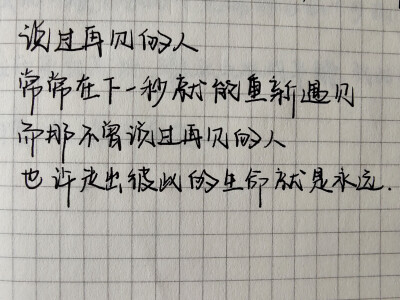 说过再见的人
常常在下一秒就能重新遇见
而那不曾说过再见的人
也许走出彼此的生命就是永远.